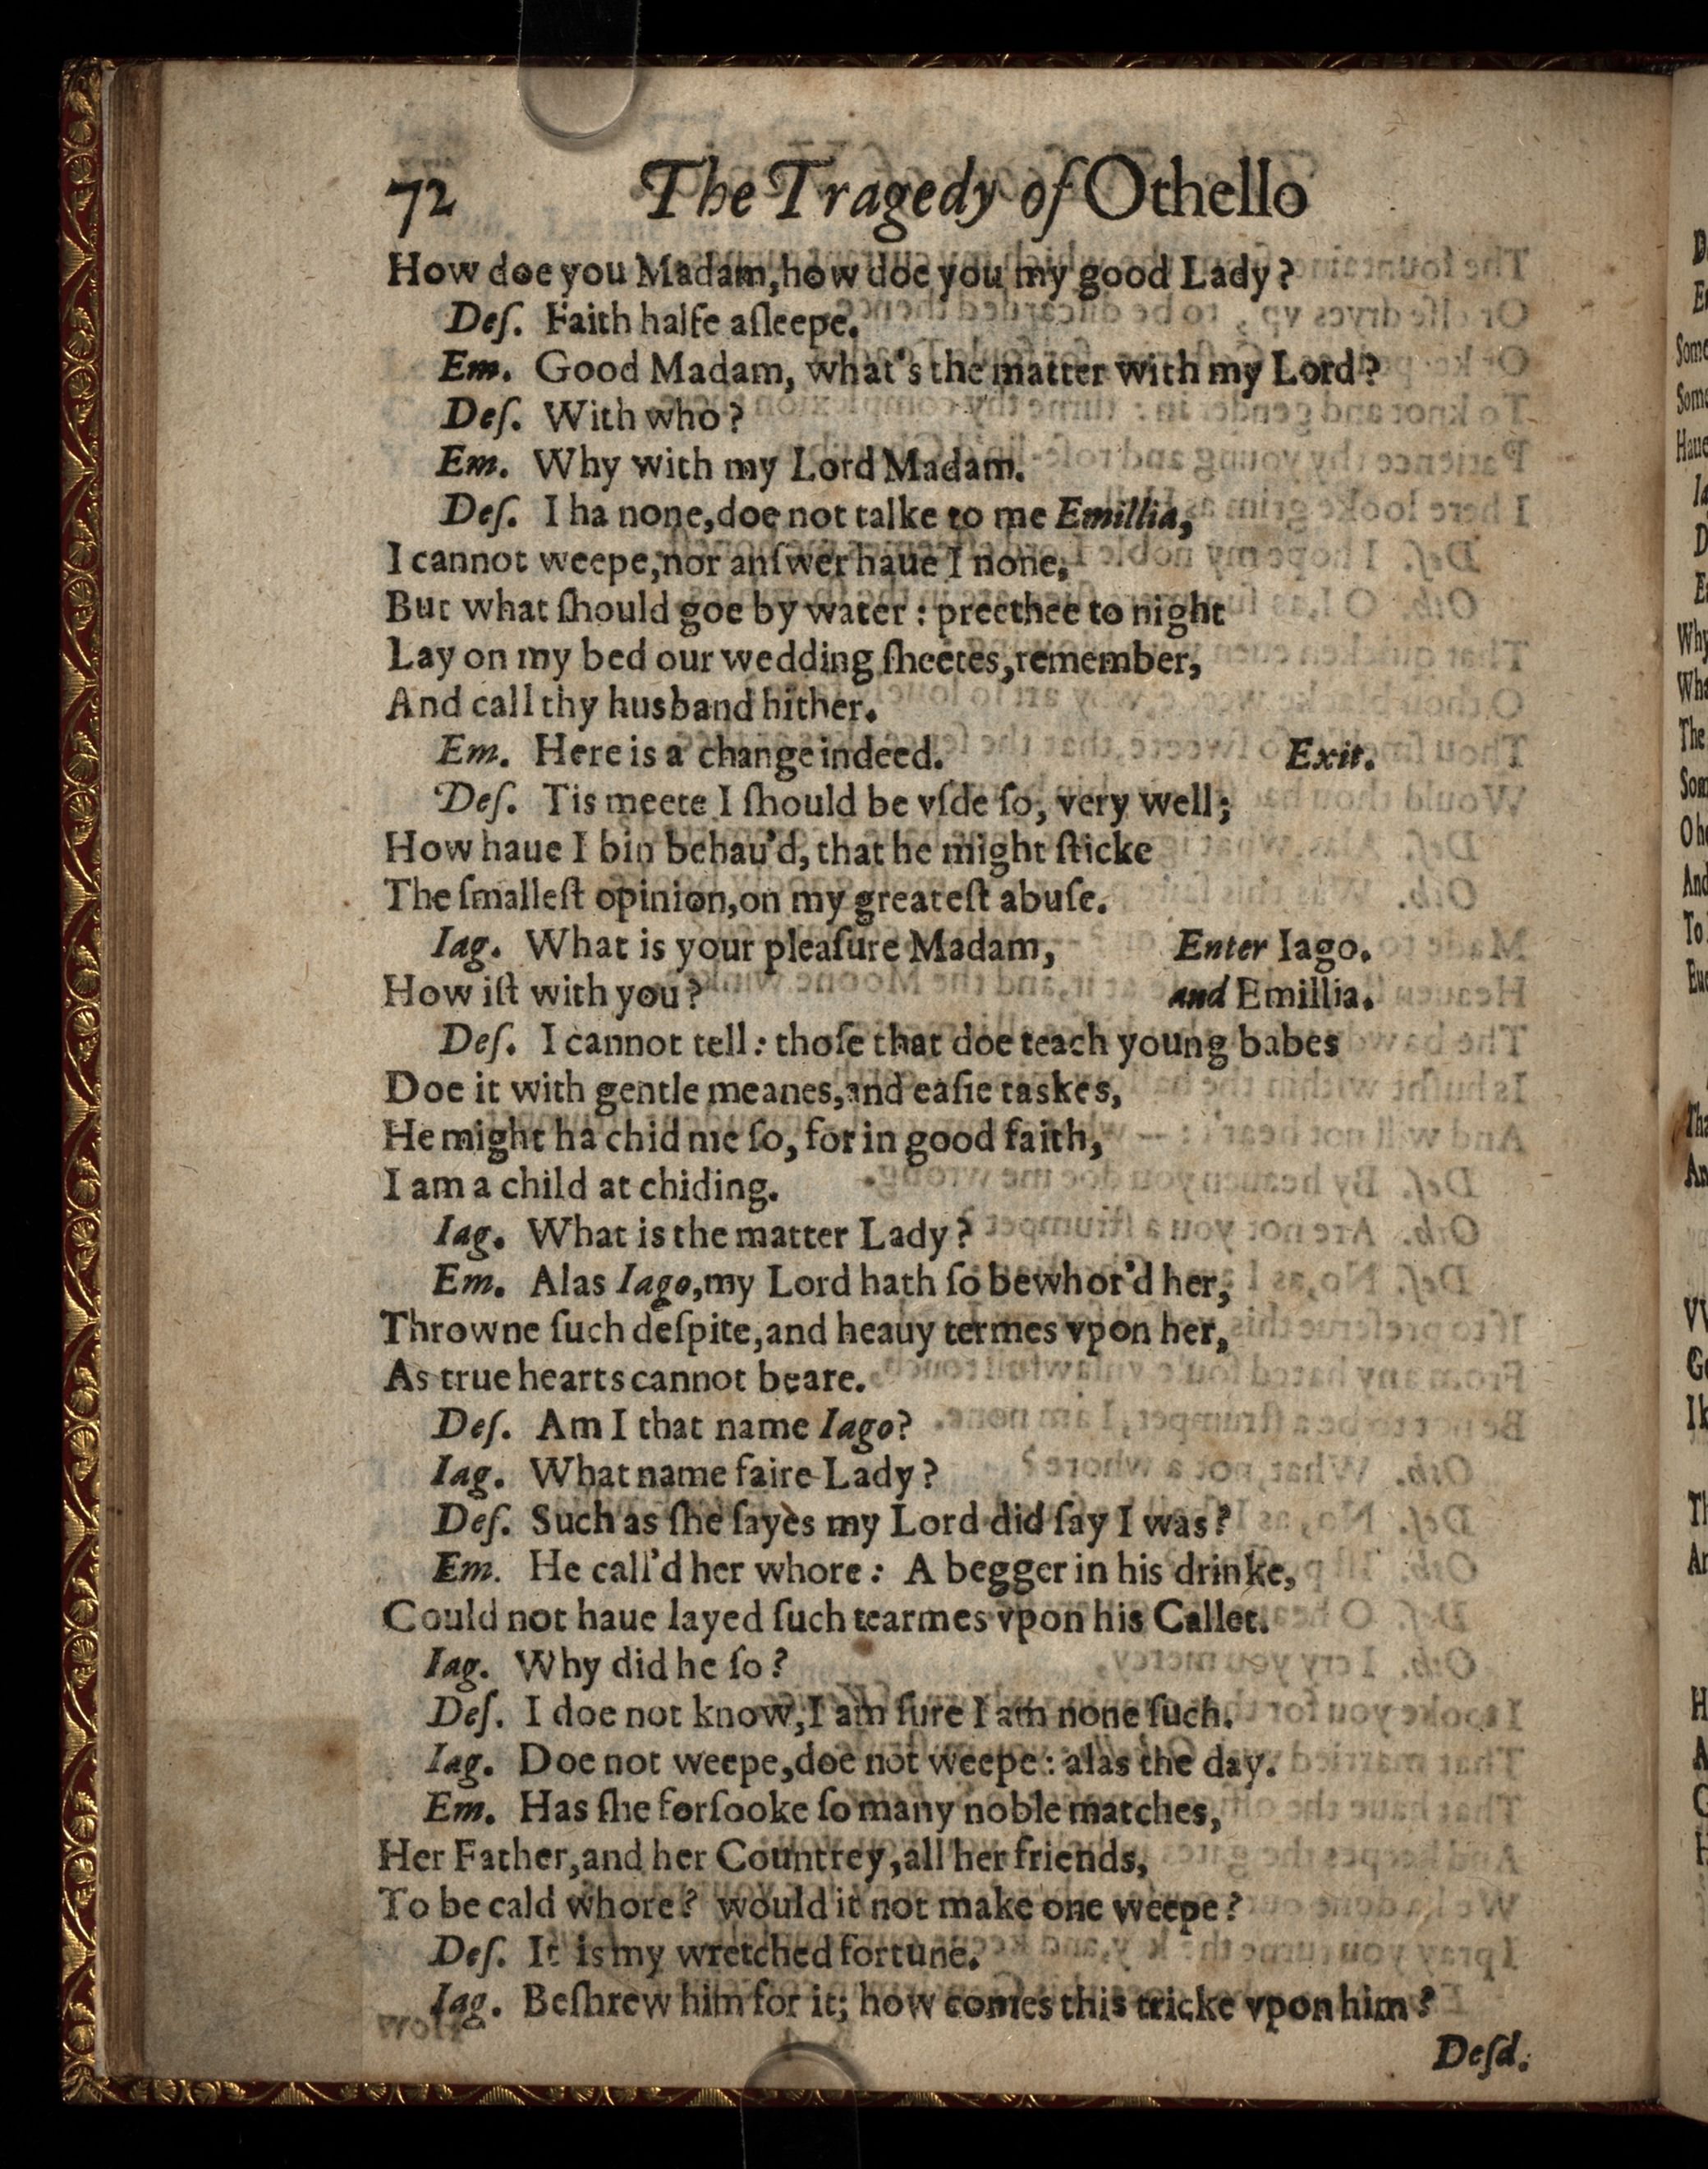 72 The Tragedy of Othello
How doe you Madam, how doe you my good Lady?
Deſ. Faith halfe aſleepe.
Em. Good Madam, what's the matter with my Lord?
Deſ. With who?
Em. Why with my Lord Madam.
Deſ. I ha none, doe not talke to me Emillia,
I cannot weepe, nor anſwer haue I none,
But what ſhould goe by water: preethee to night
Lay on my bed our wedding ſheetes, remember,
And call thy husband hither.
Em. Here is a change indeed. Exit.
Deſ. Tis meete I ſhould be vſde ſo, very well;
How haue I bin behau'd, that he might ſticke
The ſmalleſt opinion, on my greateſt abuſe.
Iag. What is your pleaſure Madam, Enter Iago.
How iſt with you? and Emillia.
Deſ. I cannot tell: thoſe that doe teach young babes
Doe it with gentle meanes, and eaſie taskes,
He might ha chid me ſo, for in good faith,
I am a child at chiding.
Iag. What is the matter Lady?
Em. Alas Iago, my Lord hath ſo bewhor'd her,
Throwne ſuch deſpite, and heauy termes vpon her,
As true hearts cannot beare.
Deſ. Am I that name Iago?
Iag. What name faire Lady?
Deſ. Such as ſhe ſayes my Lord did ſay I was?
Em. He call'd her whore: A begger in his drinke,
Could not haue layed ſuch tearmes vpon his Callet.
Iag. Why did he ſo?
Deſ. I doe not know, I am ſure I am none ſuch.
Iag. Doe not weepe, doe not weepe: alas the day.
Em. Has ſhe forſooke ſo many noble matches,
Her Father, and her Countrey, all her friends,
To be cald whore? would it not make one weepe?
Deſ. It is my wretched fortune.
Iag. Beſhrew him for it; how comes this tricke vpon him?
Deſd.